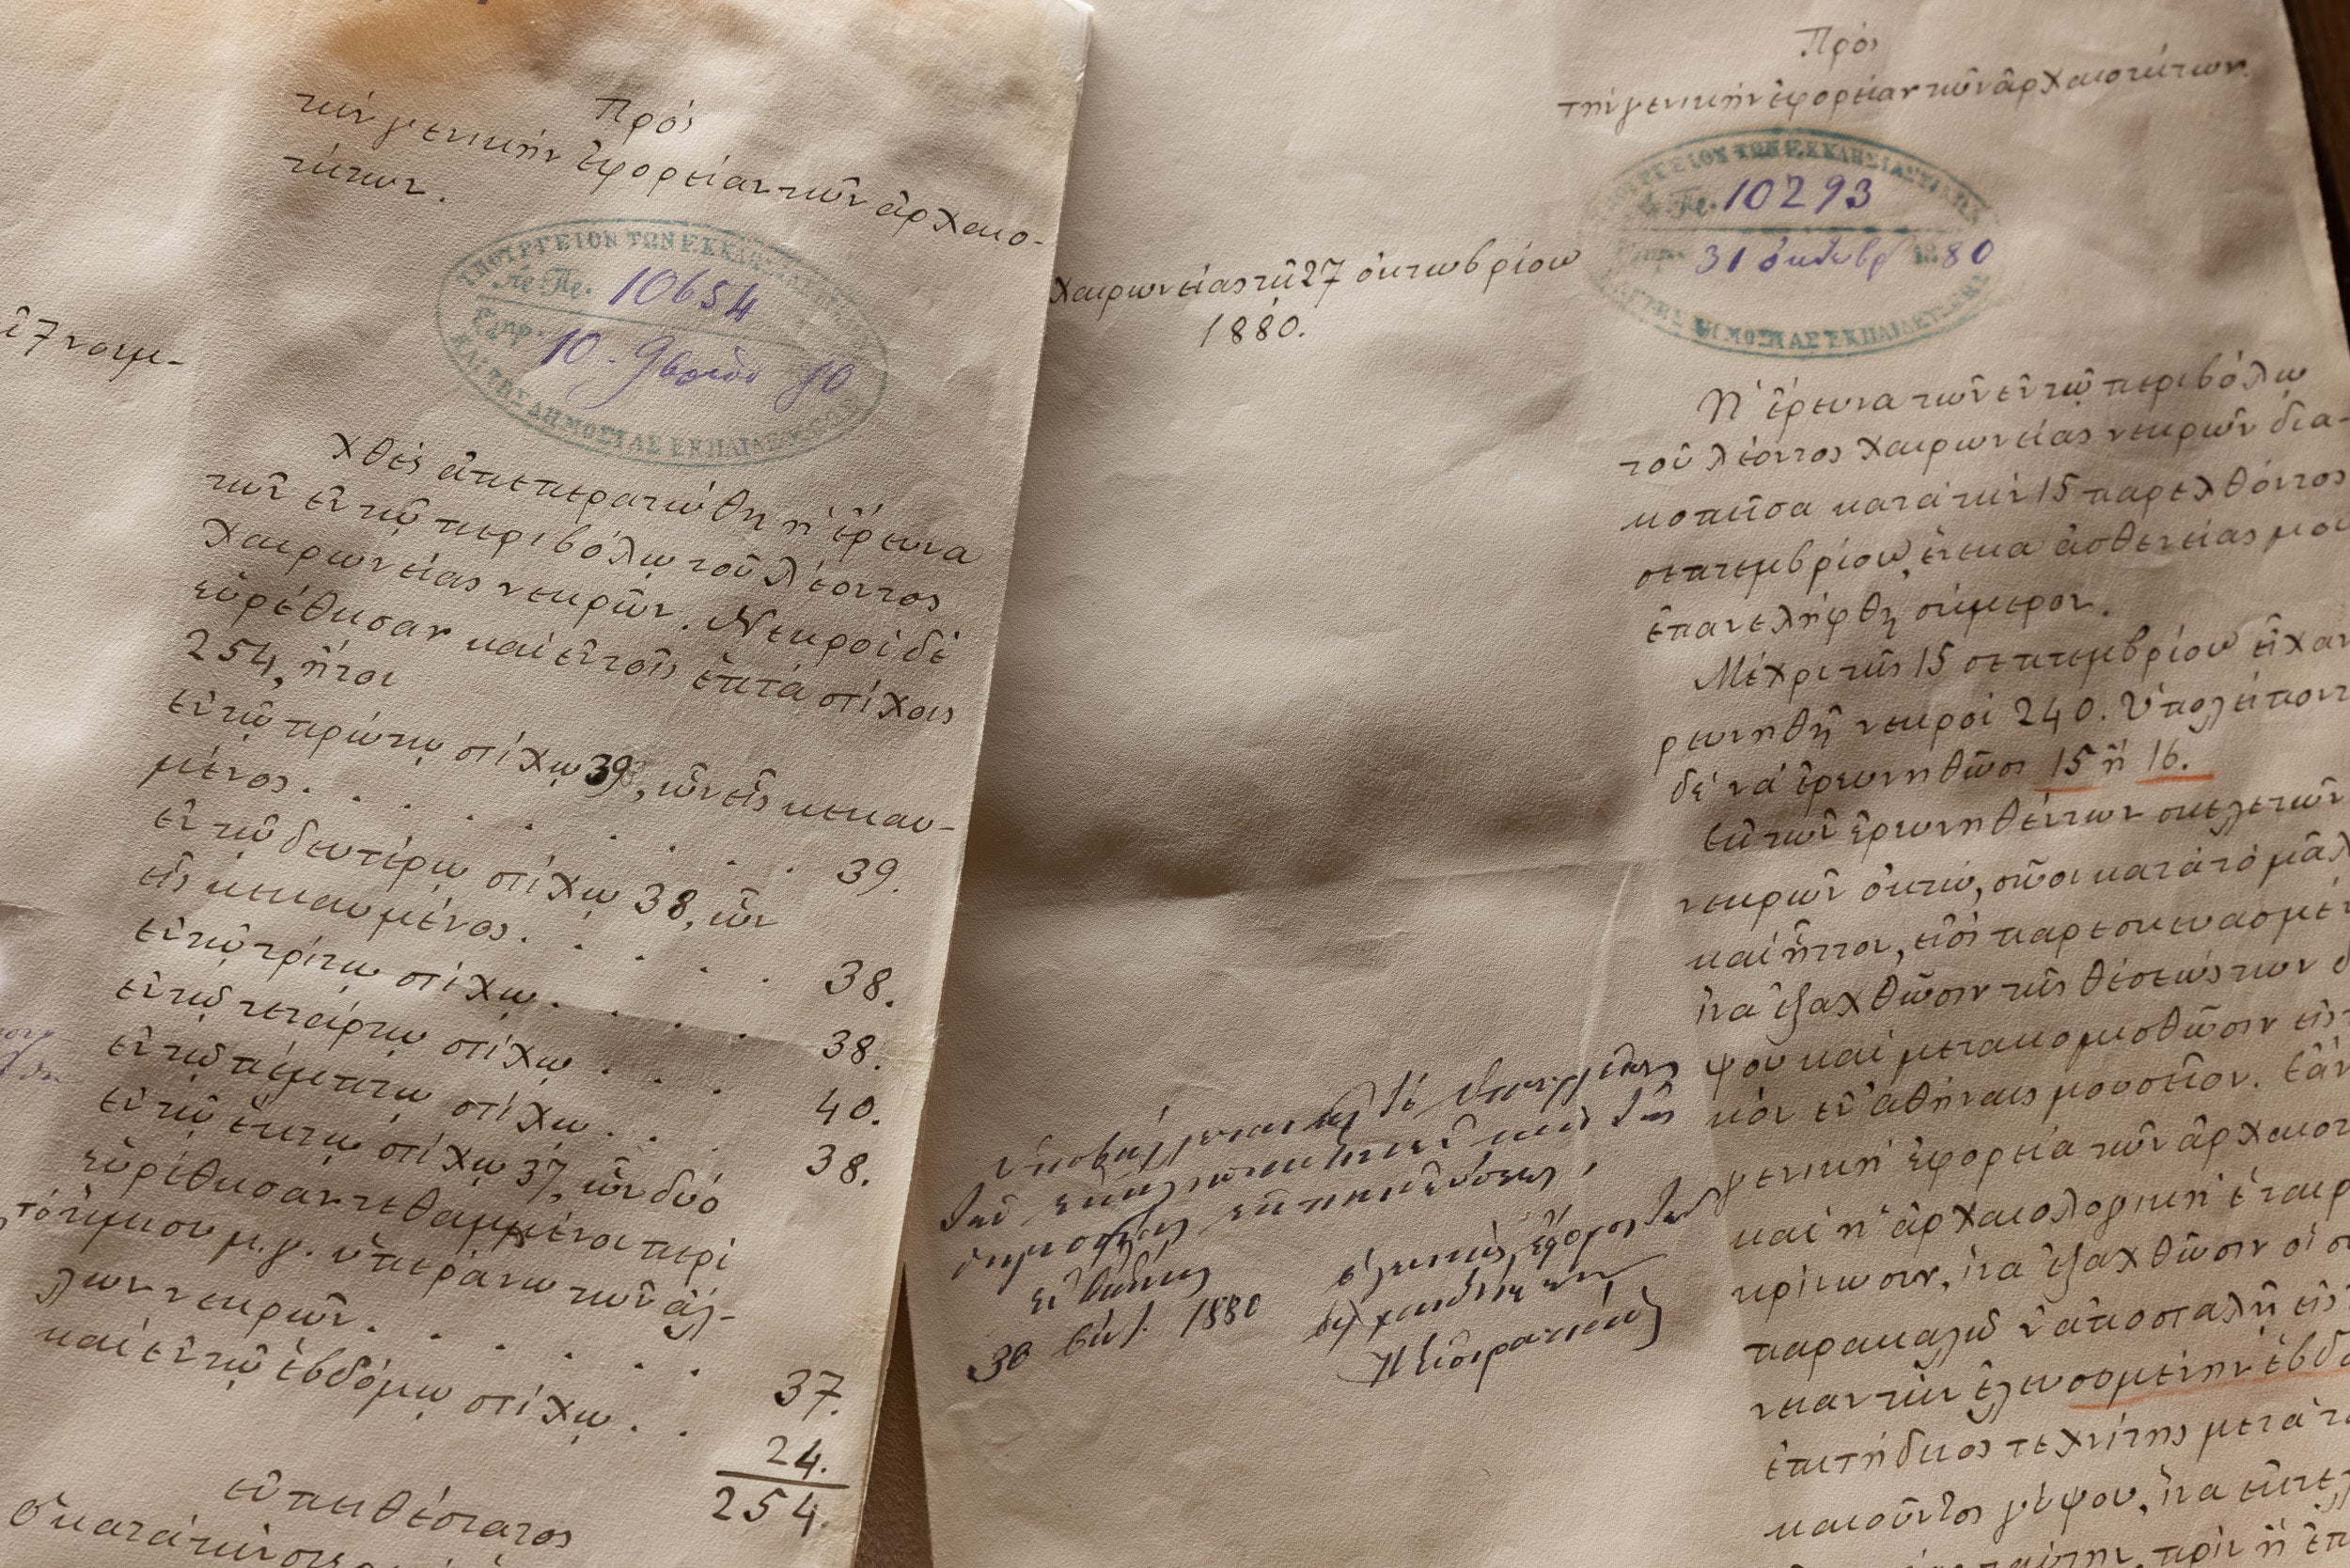 Πρός
τήν γενικήν ἐφορείαν τῶν ἀρχαιο-
τήτων.
ΥΠΟΥΡΓΕΙΟΝ ΤΩΝ ΕΚΚΛΗΣΙΑΣΤΙΚΩΝ
Ἀρ. Πρ. 10654
10. 9βρίου 80
ΚΑΙ ΤΗΣ ΔΗΜΟΣΙΑΣ ΕΚΠΑΙΔΕΥΣΕΩΣ
7 νοεμ-
χθές ἀπεπερατώθη ἡ ἔρευνα
τῶν ἐν τῷ περιβόλῳ τοῦ λέοντος
Χαιρωνείας νεκρῶν. Νεκροί δέ
εὑρέθησαν καί ἐν τοῖς ἑπτά στίχοις
254, ἤτοι
ἐν τῷ πρώτῳ στίχῳ 39, ὧν εἷς κεκαυ-
μένος . . . . . . . . 39.
ἐν τῷ δευτέρῳ στίχῳ 38, ὧν
εἷς κεκαυμένος . . . . . 38.
ἐν τῷ τρίτῳ στίχῳ . . . . 38.
ἐν τῷ τετάρτῳ στίχῳ . . . 40.
ἐν τῷ πέμπτῳ στίχῳ . . . 38.
ἐν τῷ ἕκτῳ στίχῳ 37, ὧν δύο
εὑρέθησαν τεθαμμένοι περί
τό ἥμισυ μ. γ. ὑπεράνω τῶν ἄλ-
λων νεκρῶν . . . . . . . 37.
καί ἐν τῷ ἑβδόμῳ στίχῳ . . 24.
254.
εὐπειθέστατος
Πρός
τήν γενικήν ἐφορείαν τῶν ἀρχαιοτήτων.
ΥΠΟΥΡΓΕΙΟΝ ΤΩΝ ΕΚΚΛΗΣΙΑΣΤΙΚΩΝ
Ἀρ. Πρ. 10293
31 ὀκτωβρ 1880
ΚΑΙ ΤΗΣ ΔΗΜΟΣΙΑΣ ΕΚΠΑΙΔΕΥΣΕΩΣ
Χαιρωνείας τῇ 27 ὀκτωβρίου
1880.
Ἡ ἔρευνα τῶν ἐν τῷ περιβόλῳ
τοῦ λέοντος Χαιρωνείας νεκρῶν δια-
κοπεῖσα κατά τήν 15 παρελθόντος
σεπτεμβρίου, ἕνεκα ἀσθενείας μου
ἐπανελήφθη σήμερον.
Μέχρι τῆς 15 σεπτεμβρίου εἶχαν
ρευνηθῆ νεκροί 240. Ὑπολείπονται
δέ νά ἐρευνηθῶσι 15 ἤ 16.
Ἐκ τῶν ἐρευνηθέντων σκελετῶν
νεκρῶν ὀκτώ, σῶοι κατά τό μᾶλ
καί ἧττον, εἰσί παρεσκευασμέν
ἵνα ἐξαχθῶσιν τῆς θέσεώς των δ
ψου καί μετακομισθῶσιν εἰς τ
κόν ἐν ἀθήναις μουσεῖον. Ἐάν
γενική ἐφορεία τῶν ἀρχαιοτ
καί ἡ ἀρχαιολογική ἑταιρ
κρίνωσιν, ἵνα ἐξαχθῶσιν οἱ σ
παρακαλῶ ν' ἀποσταλῇ εἰς
νειαν τήν ἐλευσομένην ἑβδο
ἐπιτήδειος τεχνίτης μετά τ
καιοῦντος γύψου, ἵνα
πρίν ἤ ἐπ
Ὑποβάλλεται εἰς τό Ὑπουργεῖον
τῶν ἐκκλησιαστικῶν καί τῆς
δημοσίας ἐκπαιδεύσεως,
ἐν Ἀθήναις
30 Ὀκτ. 1880
ὁ γενικός ἔφορος τῶν
ἀρχαιοτήτων
Π Εὐστρατιάδης